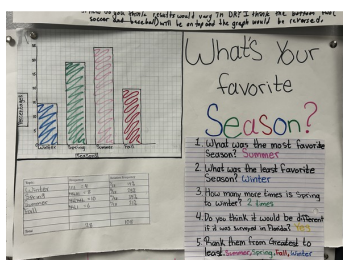 results would vary in DR? I think the bottom two
soccer and baseball) will be on top and the graph would be reversed.
What's Your
favorite
Season?
Percentages
Winter Spring Summer Fall
Seasons
Winter
Spring
Summer
Fall
1. What was the most favorite
Season? Summer
2. What was the least favorite
Season? Winter
3. How many more times is Spring
to winter? 2 times
4. Do you think it would be different
if it was surveyed in Florida? Yes
5. Rank them from Greatest to
least. Summer, Spring, Fall, Winter